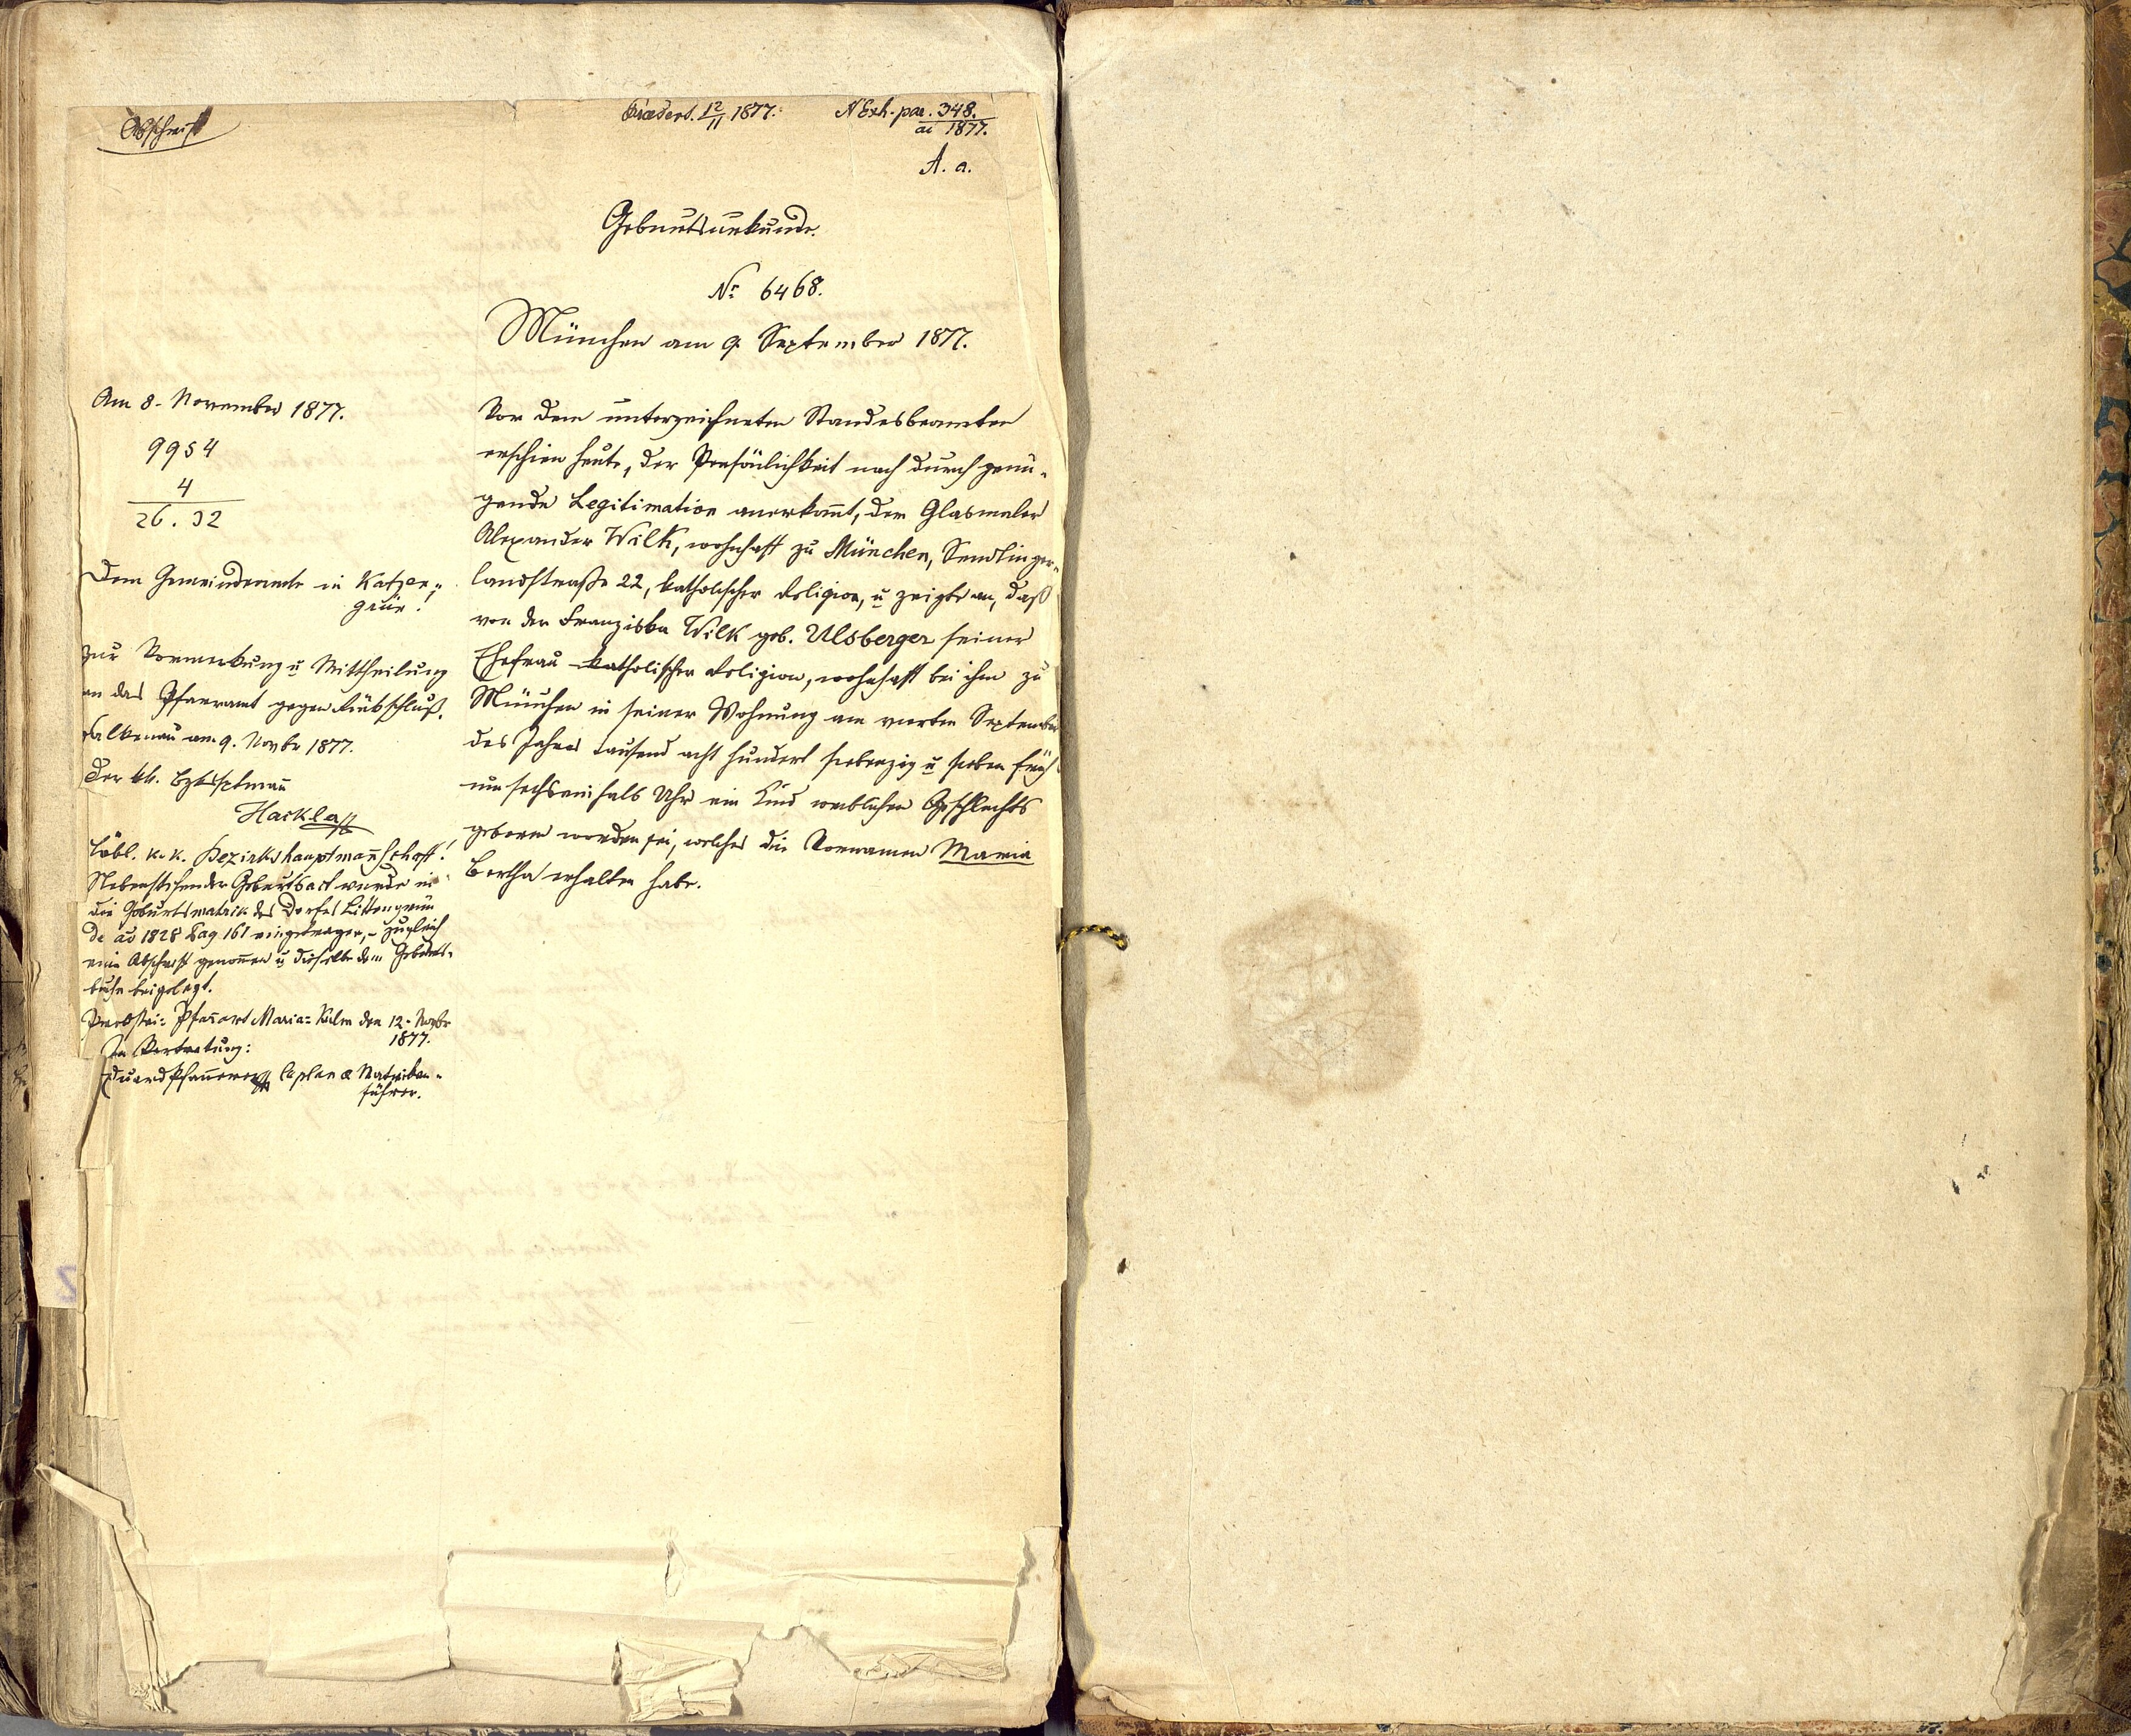 Abschrift
Präsent. 12/11 1877. N Exh. par. 348.
ai 1877.
A. a.
Geburtsurkunde.
Nr. 6468.
München am 9. September 1877.
Vor dem unterzeichneten Standesbeamten
erschien heute, der Persönlichkeit nach durch genü-
gende Legitimation anerkannt, der Glasmaler
Alexander Wilk, wohnhaft zu München, Sendlinger-
landstraße 22, katholischer Religion, u zeigte an, daß
von der Franziska Wilk geb. Ulsberger seiner
Ehefrau katholischer Religion, wohnhaft bei ihm zu
München in seiner Wohnung am vierten September
des Jahres tausend acht hundert siebenzig u sieben früh
um sechseinhalb Uhr ein Kind weiblichen Geschlechts
geboren worden sei, welches die Vornamen Maria
Bertha erhalten habe.
Am 8. November 1877.
9954
4
26.32
Dem Gemeindeamte in Katzen-
grün!
zur Vormerkung u Mittheilung
an das Pfarramt gegen Rückschluß.
Falkenau am 9. Novbr 1877.
Der kk. Bzkshptmañ
Hackl
Löbl. k. k. Bezirkshauptmañschaft!
Nebenstehender Geburtsact wurde in
die Geburtsmatrik des Dorfes Littengrün
de ao 1828 Pag 161 eingetragen, - zugleich
eine Abschrift genomen u dieselbe dem Geburts-
buche beigelegt.
Probstei- Pfarramt Maria-Kulm den 12. Novbr
1877.
In Vertretung:
Eduard Pfannerer Caplan & Matriken-
führer.